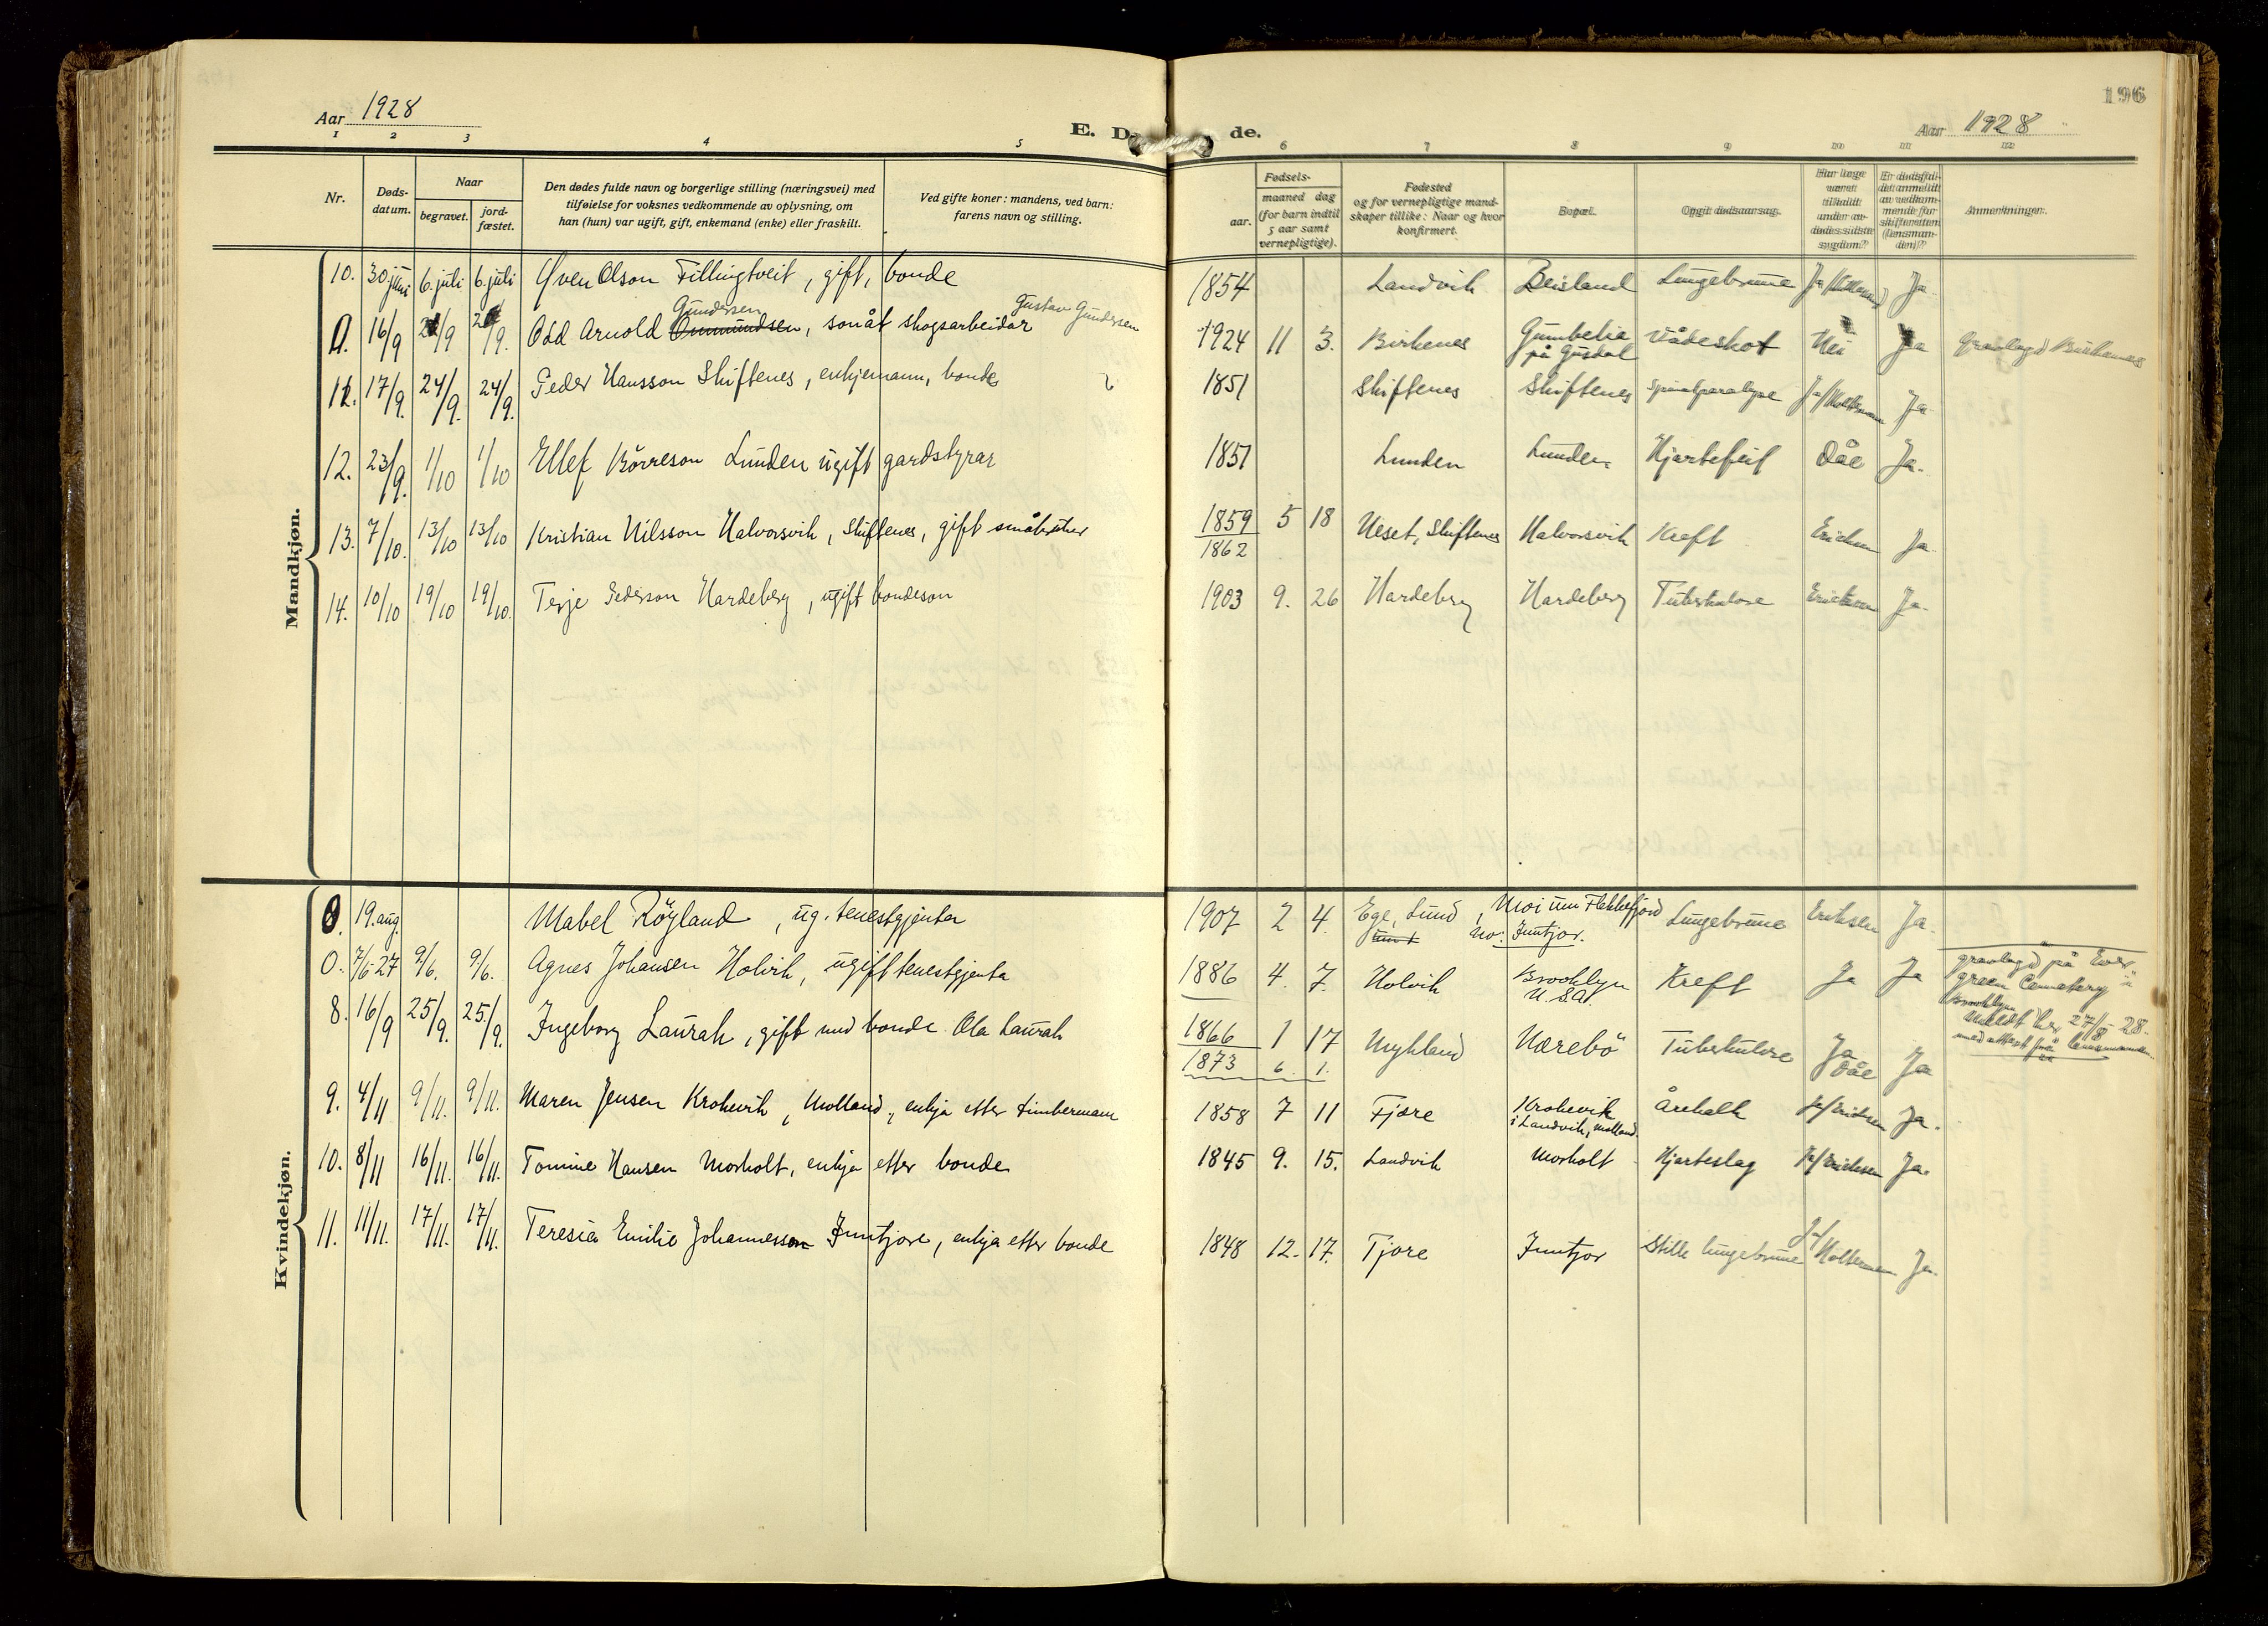 Aar 1928
E. Dø de.
Aar 1928
196
1 2 3 4 5 6 7 8 9 10 11 12
Nr.
Døds-
datum.
Naar
begravet.
jord-
fæstet.
Den dødes fulde navn og borgerlige stilling (næringsvei) med
tilføielse for voksnes vedkommende av oplysning, om
han (hun) var ugift, gift, enkemand (enke) eller fraskilt.
Ved gifte koner: mandens, ved barn:
farens navn og stilling.
Fødsels-
aar.
maaned dag
(for barn indtil
5 aar samt
vernepligtige).
Fødested
og for vernepligtige mand-
skaper tillike: Naar og hvor
konfirmert.
Bopæl.
Opgit dødsaarsag.
Anmerkninger.
Mandkjøn.
10. 30 juni 6. juli 6. juli Syen Olson Fillingtveit, gift, bonde 1854 Landvik Beisland Lungebrune Ja
Gundersen Gustav Gundersen
0. 16/9 /9 /9. Odd Arnold Ommundsen, son åt skogsarbeidar 1924 11 3. Birkenes Gumbelie på Gusdal Vådeskot Nei Ja Gravlagd Birkenes
11. 17/9. 24/9. 24/9. Peder Hansson Skiftenes, enkjemann, bonde 1851 Skiftenes Skiftenes Spinalparalyse Ja/Holtsmann Ja
12. 23/9. 1/10 1/10 Ellef Börreson Lunden ugift gardstyrar 1851 Lunden Lunden Hjartefeil Dåe Ja.
13. 7/10. 13/10 13/10 Kristian Nilsson Halvorsvik, Skiftenes, gift småbruker 1859 5 18 Neset, Skiftenes Halvorsvik Kreft Ericksen Ja
1862
14. 10/10 19/10 19/10. Terje Pederson Hardeberg, ugift bondeson 1903 9. 26 Hardeberg Hardeberg Tuberkulose Ericksen Ja.
Kvindekjøn.
0. 19. aug. Mabel Röyland, ug. tenestgjenta 1907 2 4. Ege, Lund, Moi um Flekkefjord No: Inntjor. Lungebrune Eriksen Ja.
0. 7/6-27 9/6. 9/6. Agnes Johansen Holvik, ugift tenestgjenta 1886 4. 7. Holvik Brooklyn U.S.A. Kreft Ja Ja gravlagd på Ever
green Cemetery
Brooklyn
Meldt her 27/8-28.
med attest frå lensmannen
8. 16/9 25/9. 25/9. Ingeborg Laurak, gift med bonde Ola Laurak 1866 1 17 Mykland Nærebö Tuberkulose Ja Dåe Ja
1873 6. 1.
9. 4/11 9/11. 9/11. Maren Jensen Krokevik, Molland, enkja etter timbermann 1858 7 11 Fjære Krokevik i Landvik, Molland. Årekalk Ja/Ericksen Ja.
10. 8/11 16/11. 16/11. Tomine Hansen Morholt, enkja etter bonde 1845 9. 15. Landvik Morholt Hjarteslag Ja/Ericksen Ja.
11. 11/11. 17/11. 17/11. Teresia Emilie Johannesson Inntjore, enkja etter bonde 1848 12. 17. Tjore Inntjor Stille lungebrune Ja/Holtsmann Ja.